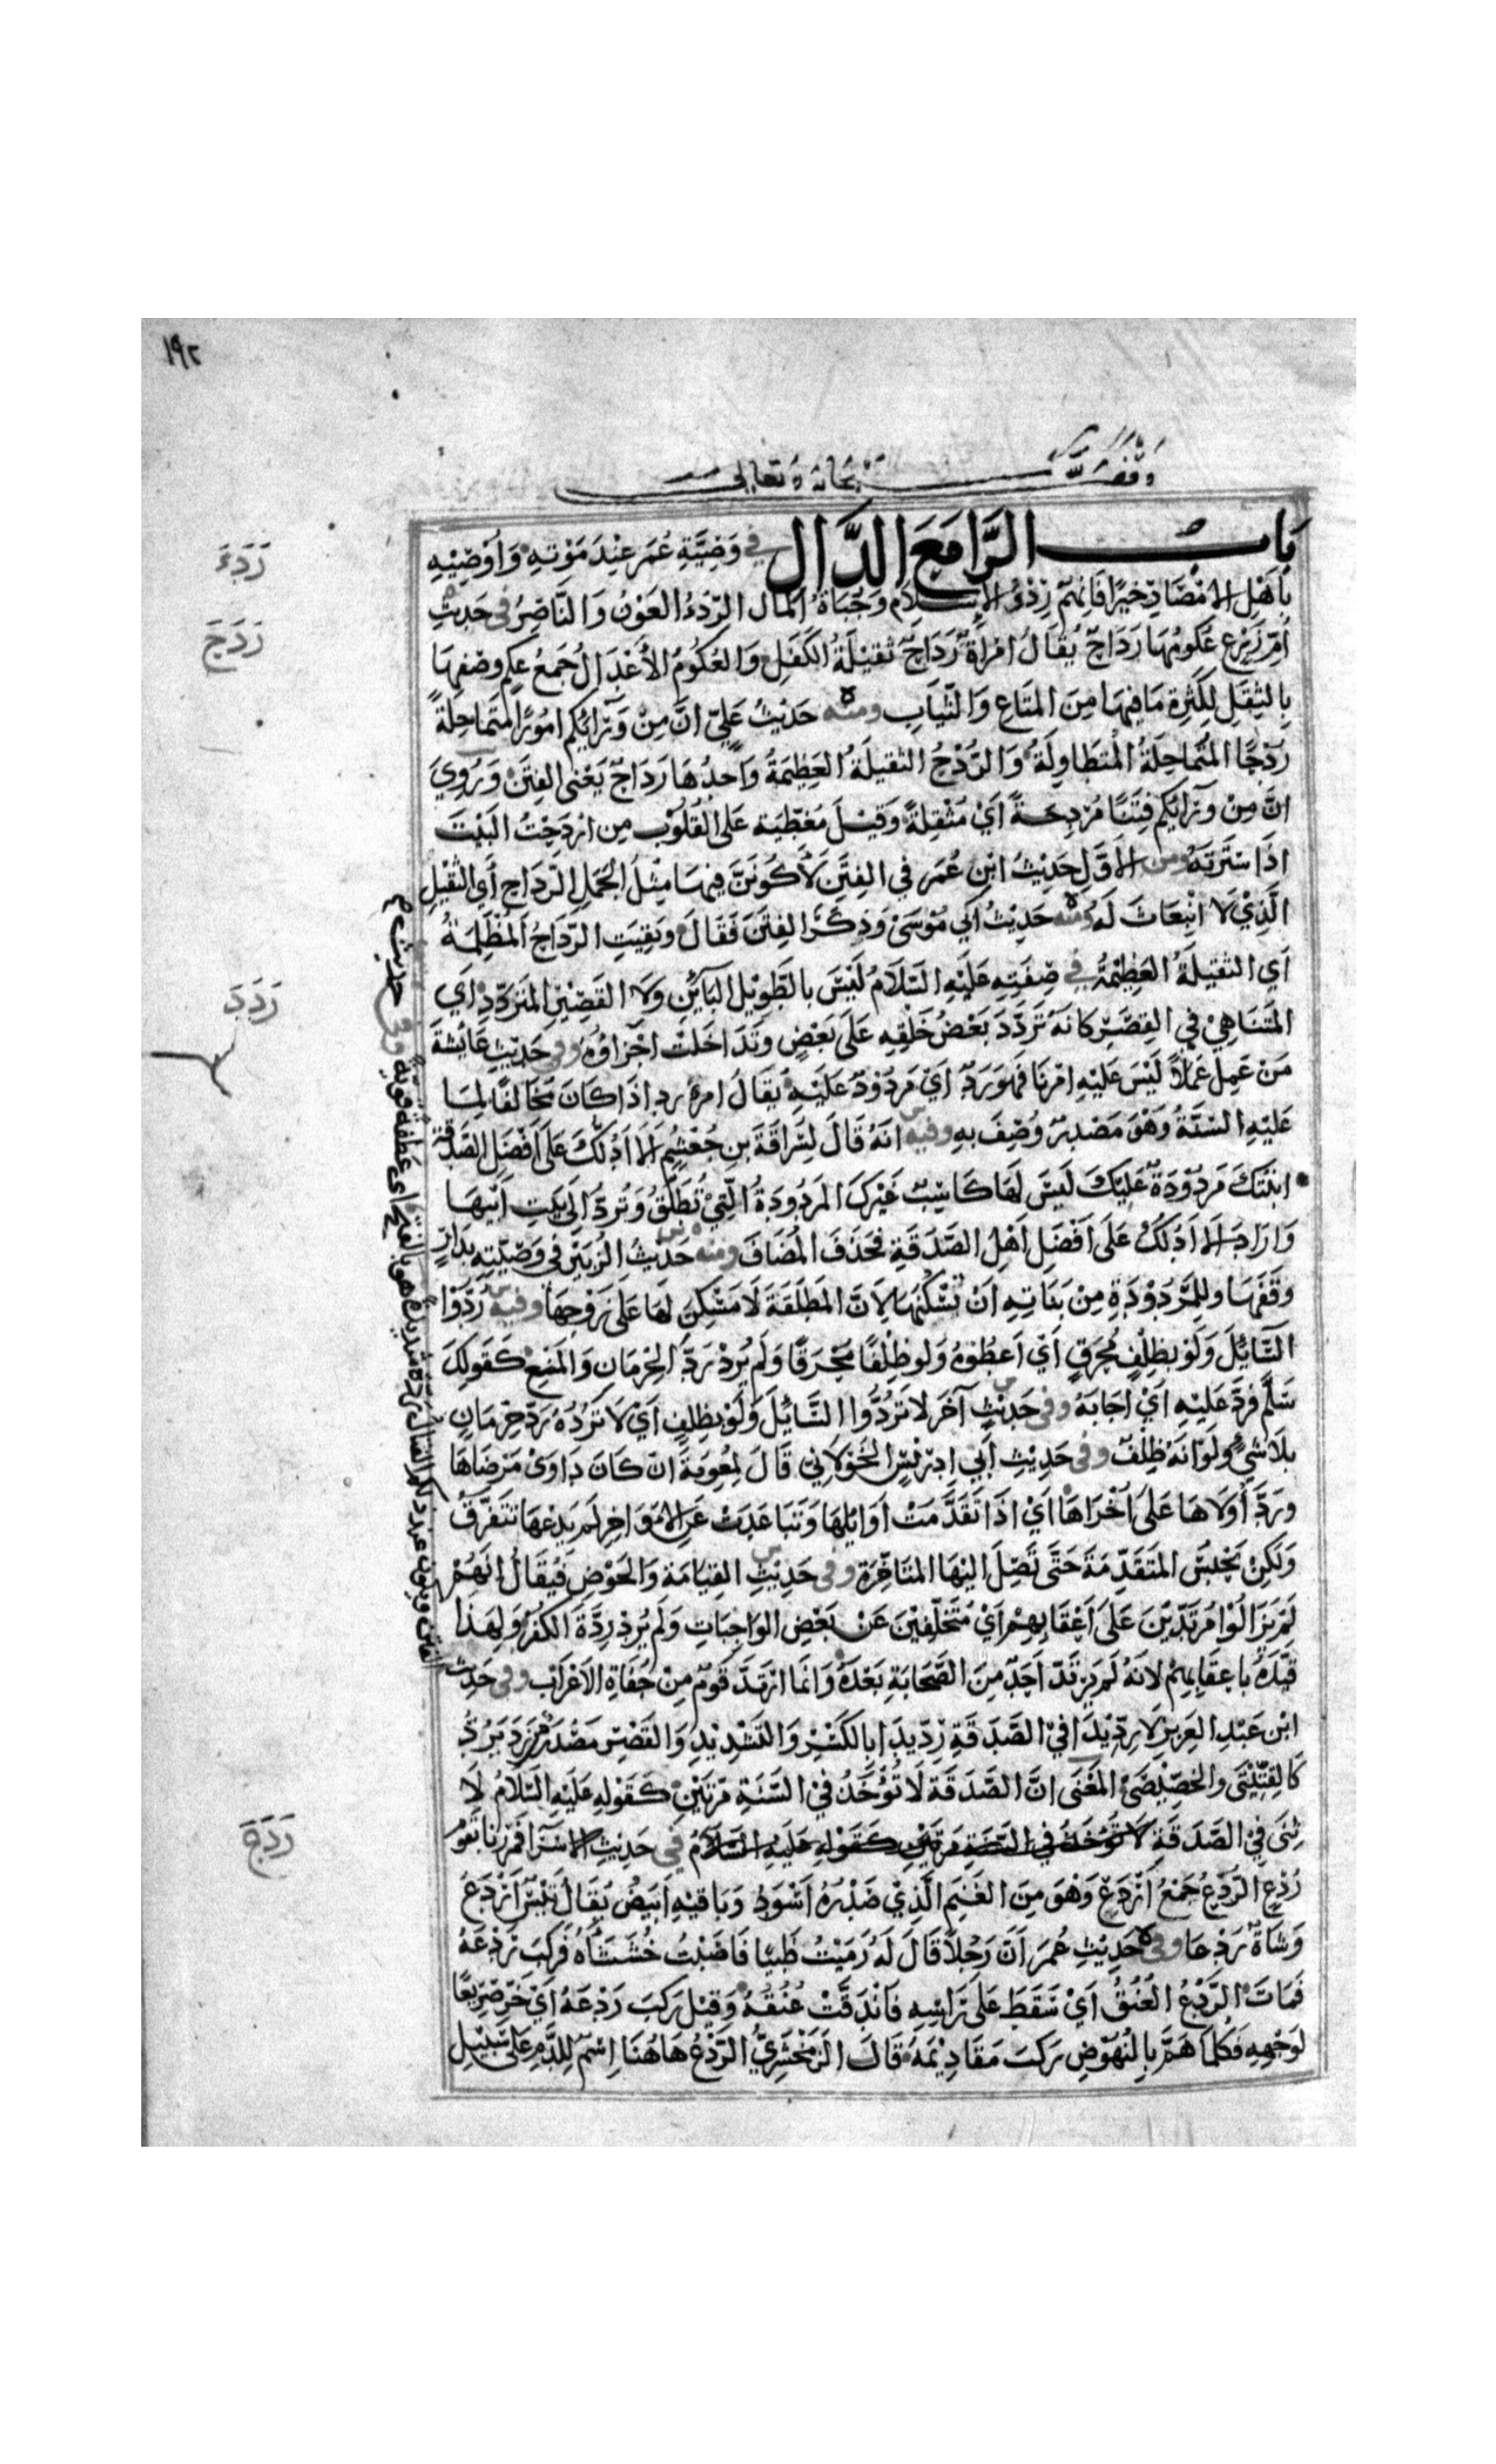 ١٩٢
وقف لله سبحانه وتعالى
بَابُ الرَّا مَعَ الدَّالِ في وَصِيَّةِ عُمَر عِنْدَ مَوْتِهِ وَأُوصِيْهِ
بِأَهْلِ الامْصَارِ خيرًا فَإِنهم رِدْءُ الإسلام وَجُبَاةُ المال الرِّدْءُ العَوْنُ وَالنَّاصِرُ في حَدِيْثِ
أُمِّ زَرْعٍ عُكُومُهَا رَدَاحٌ يُقَالُ امْرَاةٌ رَدَاحٌ ثقيلَةُ الكَفَلِ وَالعُكُومُ الأَعْدَالُ جَمعُ عِكم وصفهَا
بِالثِّقَلِ لِكَثِرة مَا فيهَا مِنَ المتَاعِ وَالثِّيَابِ ومنه حَدِيْثُ عَلِيّ انَّ مِنْ وَرَائِكُم امُورًا مُتَماحِلَةً
رُدُحًا المُتَماحِلَةُ المُتَطَاوِلَةُ وَالرُّدُحُ الثقيلَةُ العَظِيمَةُ وَاحِدُهَا رَدَاحٌ يَعْنى الفِتَن وَرُوِيَ
انَّ مِنْ وَرَائِكُم فِتَنًا مُرْدِحَةً أَيْ مُثْقِلةً وَقِيْلَ مُغَطِّيَة عَلى القُلُوْب مِن ارْدَحْتُ البَيْتَ
اذَا سَتَرْتَهُ ومن الأوّل حَدِيْثُ ابْنِ عُمَر في الفِتَن لأَكُونَنَّ فِيهَا مِثْلَ الجَمَلِ الرَّدَاحِ أَي الثَّقِيْلِ
الَّذِيْ لا انْبِعَاثَ لَه ومنه حَدِيْثُ أَبي مُوْسَىْ وَذَكَرَ الفِتَن فَقَالَ وَبَقِيَتِ الرَّدَاحُ المُظْلِمَةُ
اي الثقيلَةُ العَظِيْمَةُ في صِفَتِهِ عَلَيْهِ السَّلَامُ لَيْسَ بالطَّوِيْل البَائِنِ وَلَا القَصِيْرِ المُتَردِّدِ اي
المتَنَاهِيْ في القِصَر كانه تَردَّدَ بَعْضُ خَلْقِهِ عَلَى بَعْضٍ وَتَدَاخَلتْ اجْزَاؤه وفي حَدِيْثِ عَائِشَة
مَنْ عَمِلَ عَمَلاً لَيْسَ عَلَيْهِ امْرُنَا فَهوَ رَدٌّ أيْ مَرْدُوْدٌ عَلَيْهِ يُقَالُ امرٌ رد اذَا كَانَ مخَالفًا لِمَا
عَلَيْهِ السُّنَّةُ وَهْوَ مَصْدَرٌ وُصِفَ بِهِ وفيه انّهُ قَالَ لِسُرَاقَةَ بن جُعْشُم الا أدُلّكَ عَلَى أفْضَلِ الصَّدَقَةِ
ابْنَتكَ مَردُوْدَةٌ عَلَيْكَ لَيْسَ لَهَا كَاسِبٌ غَيْركَ المَرْدُودَةُ الَّتِيْ تُطَلَّقُ وَتُردُّ الَى بَيتِ أَبِيْهَا
وَارَادَ الا ادُلُّكَ عَلَى أَفْضَلِ أَهْلِ الصَّدَقَةِ فحَذَفَ المُضَافَ ومنه حَدِيْثُ الزُّبَيْرِ في وَصِيَّتِهِ بِدَارٍ
وَقَفَهَا وللمَرْدُوْدَةِ مِنْ بَنَاتِهِ انْ تَسْكُنَهَا لِأَنَّ المُطَلَّقَةَ لَا مَسْكنَ لَهَا عَلَى زَوْجِهَا وفيه رُدُّوْا
السَّائِلَ وَلَوْ بظِلْفٍ مُحْرَقٍ أَيْ اَعطُوْهُ وَلو ظِلْفًا مُحْرَقًا وَلَم يُرِدْ رَدَّ الحِرْمَان وَالمَنِع كَقَولِكَ
سَلَّمَ فرَدَّ عَلَيْهِ أَيْ أَجَابَهُ وفي حَدِيْثٍ آخَر لا تَردُّوا السَّائِلَ وَلَوْ بِظِلفٍ أَيْ لَا تَرُدُّهُ رَدَّ حِرْمَانٍ
بلَا شَيْءٍ وَلَو انّه ظِلْف وفي حَدِيْثِ أَبي ادِرْيْسَ الخَوْلَانيّ قَالَ لِمُعويَةَ انْ كَانَ دَاوَىْ مَرْضَاهَا
وَرَدَّ أُوْلَاهَا عَلى أُخْرَاهَا ايْ اذَا تَقَدَّمَتْ أَوَائِلهَا وَتَبَاعَدَتْ عَنِ الأوَاخِرِ لَم يَدَعْهَا تَتَفَرَّقُ
وَلكِنْ يَحْبِسُ المتَقَدِّمَةَ حَتَّى تَصِلَ اليْهَا المتَأخِّرَة وفي حَدِيْثِ القِيَامَة وَالحَوْضِ فَيُقَالُ انَّهُمْ
لَمْ يَزَالُوْا مُرْتَدِّيْنَ عَلَى أَعْقَابِهِمْ أيْ مُتَخَلِّفِيْنَ عَنْ بَعْضِ الوَاجِبَاتِ وَلَم يُرِدْ رِدَّةَ الكُفْرِ وَلِهَذَا
قَيَّدَهُ بِاعقَابِهِمْ لأنّهُ لَم يَرْتَدّ أَحَدٌ مِنَ الصَّحَابَةِ بَعْدَهُ وَانّمَا ارْتَدَّ قَومٌ مِنْ جُفَاةِ الأَعْرَابِ وفي حَدِيْث
ابْن عَبْدِ العَزِيزِ لا رِدِّيْدَا فيْ الصَّدَقَةِ رِدِّيدَا بِالكَسْرِ وَالتَّشْدِيدِ وَالقَصْرِ مَصْدَرٌ مِنْ رَدَّ يَرُدُّ
كَالقِتِّيْتَى والخِصِّيْصَى المَعْنَى انَّ الصَّدَقَة لَا تُؤْخَذُ فيْ السَّنَةِ مَرَّتَيْنِ كَقَوْلِهِ عَلَيْهِ السَّلَامُ لَا
ثِنَى فِيْ الصَّدَقَةِ لَا تُؤْخَذُ في السَّنَةِ مَرَّتَيْن كَقَوْلِهِ عَلَيْهِ السَّلَامُ في حَدِيْثِ الاسْرَا فَمَررْنا بقَوم
رُدْعٍ الرُّدْعُ جَمْعُ أَرْدَعَ وَهْوَ مِنَ الغَنَم الَّذِيْ صَدْرُهُ أَسْوَدُ وَبَاقِيْهِ أَبيَضُ يُقَالُ تَيْسٌ أَرْدَعُ
وَشَاةٌ رَدْعَا وفي حَدِيْثِ عُمَر أنَّ رَجُلاً قَالَ لَهُ رَمَيْتُ ظَبيًا فَاصَبْتُ خُشَشَاءهُ فَرَكِبَ رَدْعَهُ
فَمَات الرَّدْعُ العُنُقُ أَيْ سَقَطَ عَلَى رَاسِهِ فَانْدَقَّتْ عُنُقُهُ وَقِيْل رَكبَ رَدْعَهُ أَيْ خَرَّ صَرِيعًا
لوَجْهِهِ فَكُلَّمَا هَمَّ بِالنُّهُوْضِ رَكبَ مَقَادِيْمَهُ قَالَ الزَّمَخْشَرِيُّ الرَّدْعُ هَاهُنَا اِسْمٌ لِلدَّمِ عَلَى سَبِيْلِ
رَدَءَ
رَدَحَ
رَدَدَ
رَدَعَ